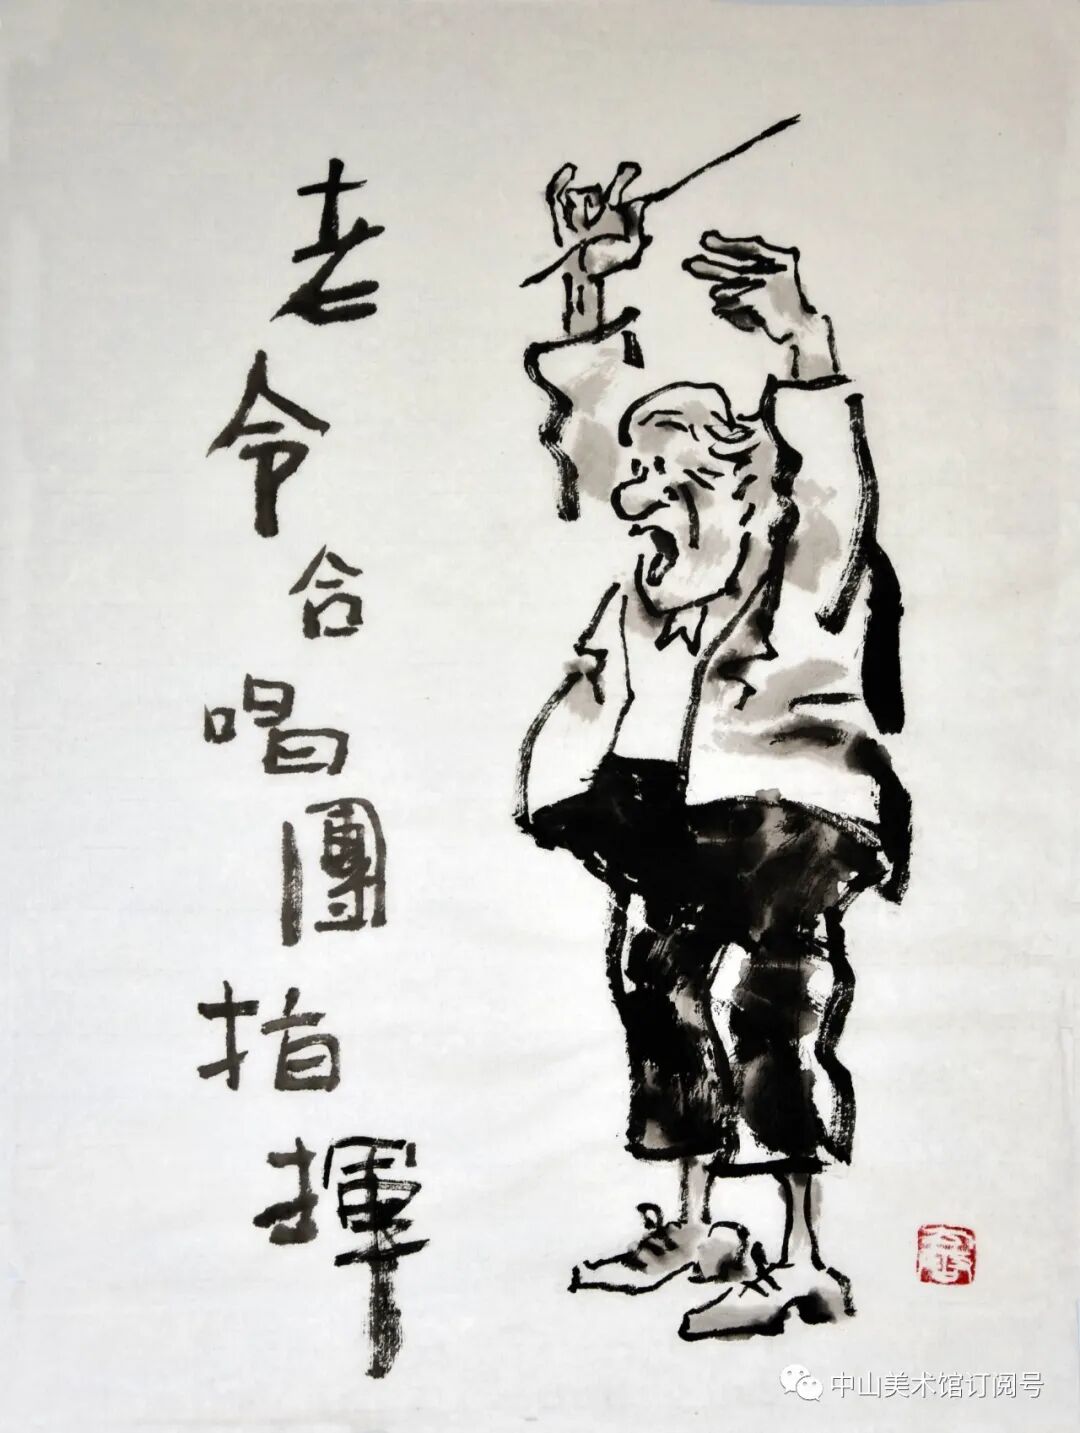 老令合唱團指揮
中山美术馆订阅号